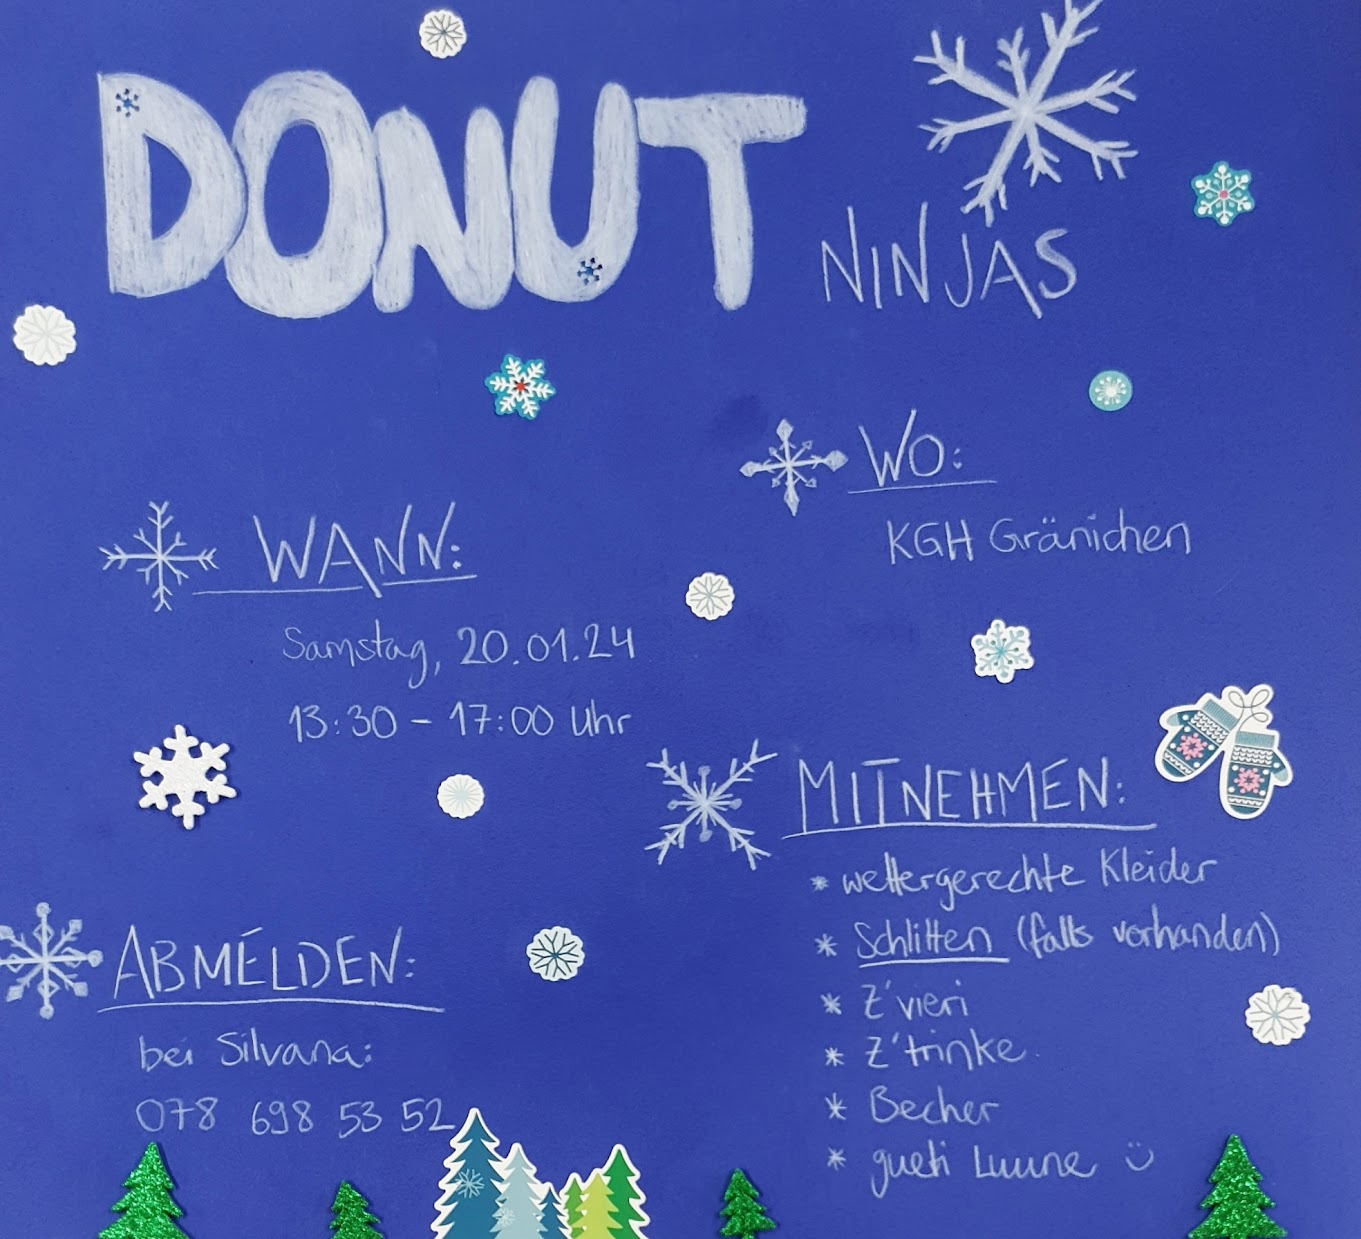 DONUT
NINJAS
WO:
KGH Gränichen
WANN:
Samstag, 20.01.24
13:30 - 17:00 Uhr
MITNEHMEN:
* wettergerechte Kleider
* Schlitten (falls vorhanden)
* Z'vieri
* Z'trinke
* Becher
* gueti Luune :)
ABMELDEN:
bei Silvana:
078 698 53 52